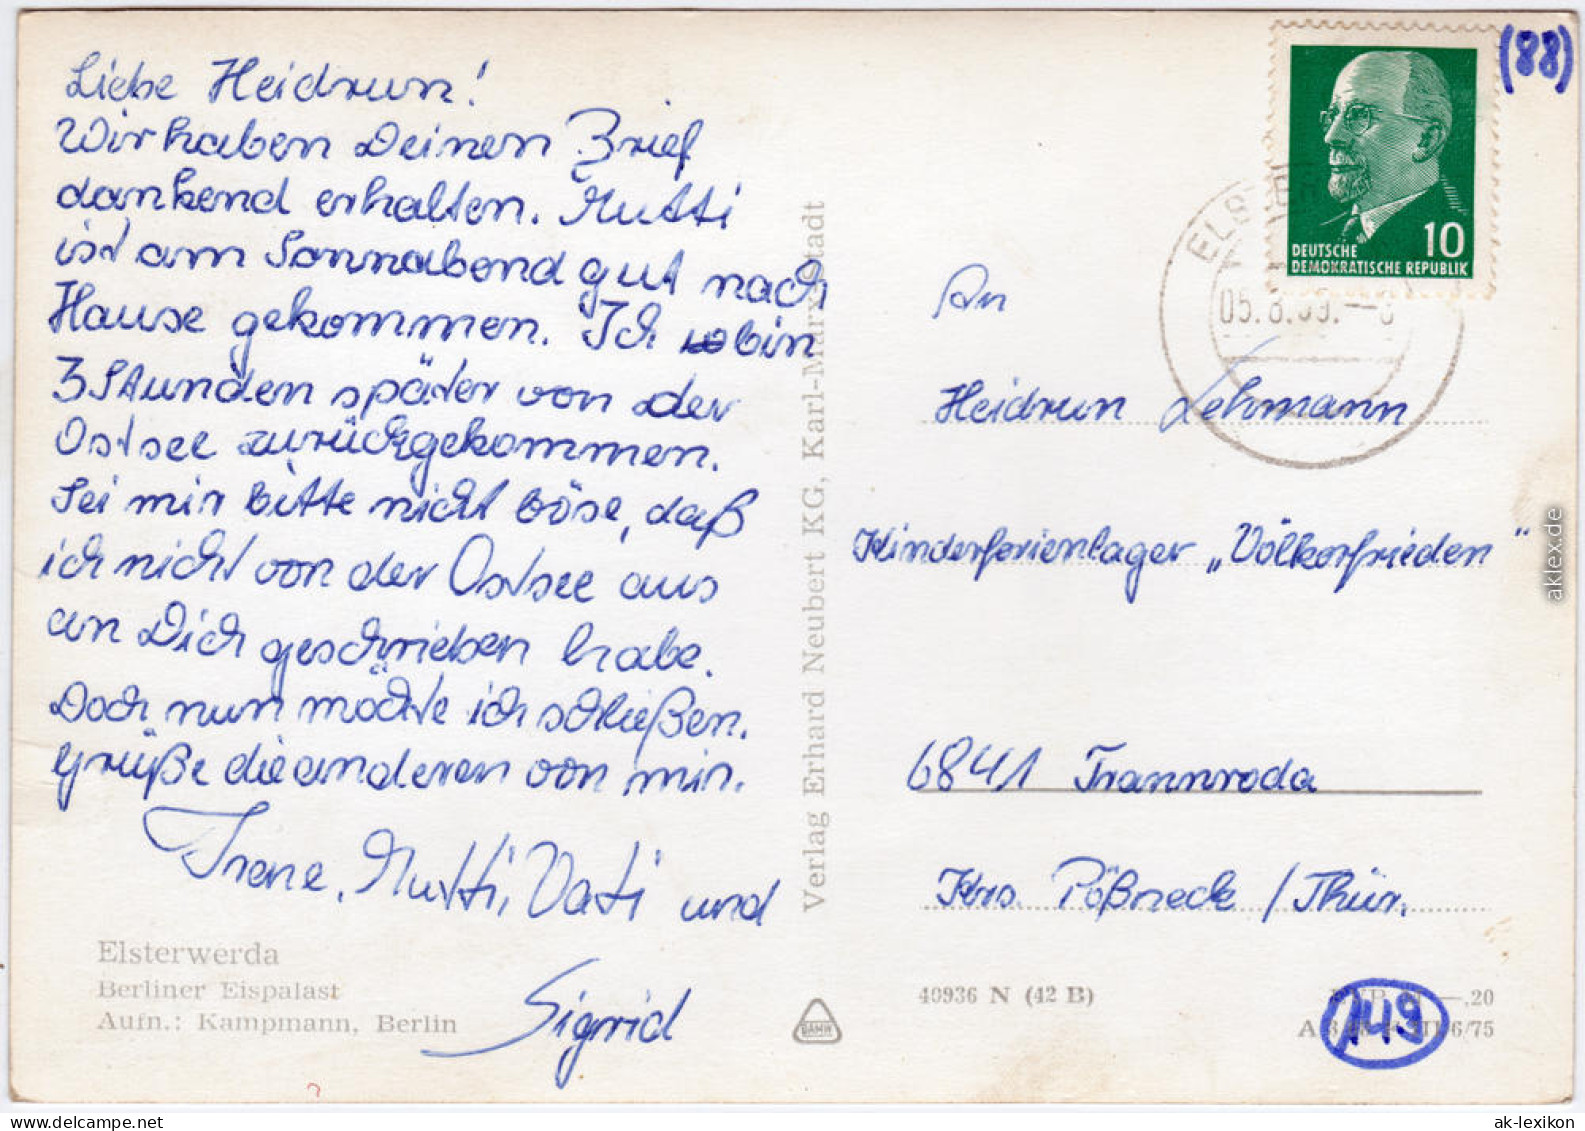 Liebe Heidrun!
Wir haben Deinen Brief
dankend erhalten. Mutti
ist am Sonnabend gut nach
Hause gekommen. Ich bin
3 Stunden später von der
Ostsee zurückgekommen.
Sei mir bitte nicht böse, daß
ich nicht von der Ostsee aus
an Dich geschrieben habe.
Doch nun möchte ich schließen.
Grüße die anderen von mir.
Irene, Mutti, Vati und
Sigrid
Elsterwerda
Berliner Eispalast
Aufn.: Kampmann, Berlin
Verlag Erhard Neubert KG, Karl-Marx-Stadt
DAMW
(88)
10
DEUTSCHE
DEMOKRATISCHE REPUBLIK
An
Heidrun Lehmann
Kinderferienlager „Völkerfrieden"
6841 Trannroda
Krs. Pößneck / Thür.
40936 N (42 B)
—,20
6/75
149
aklex.de
www.delcampe.net
ak-lexikon